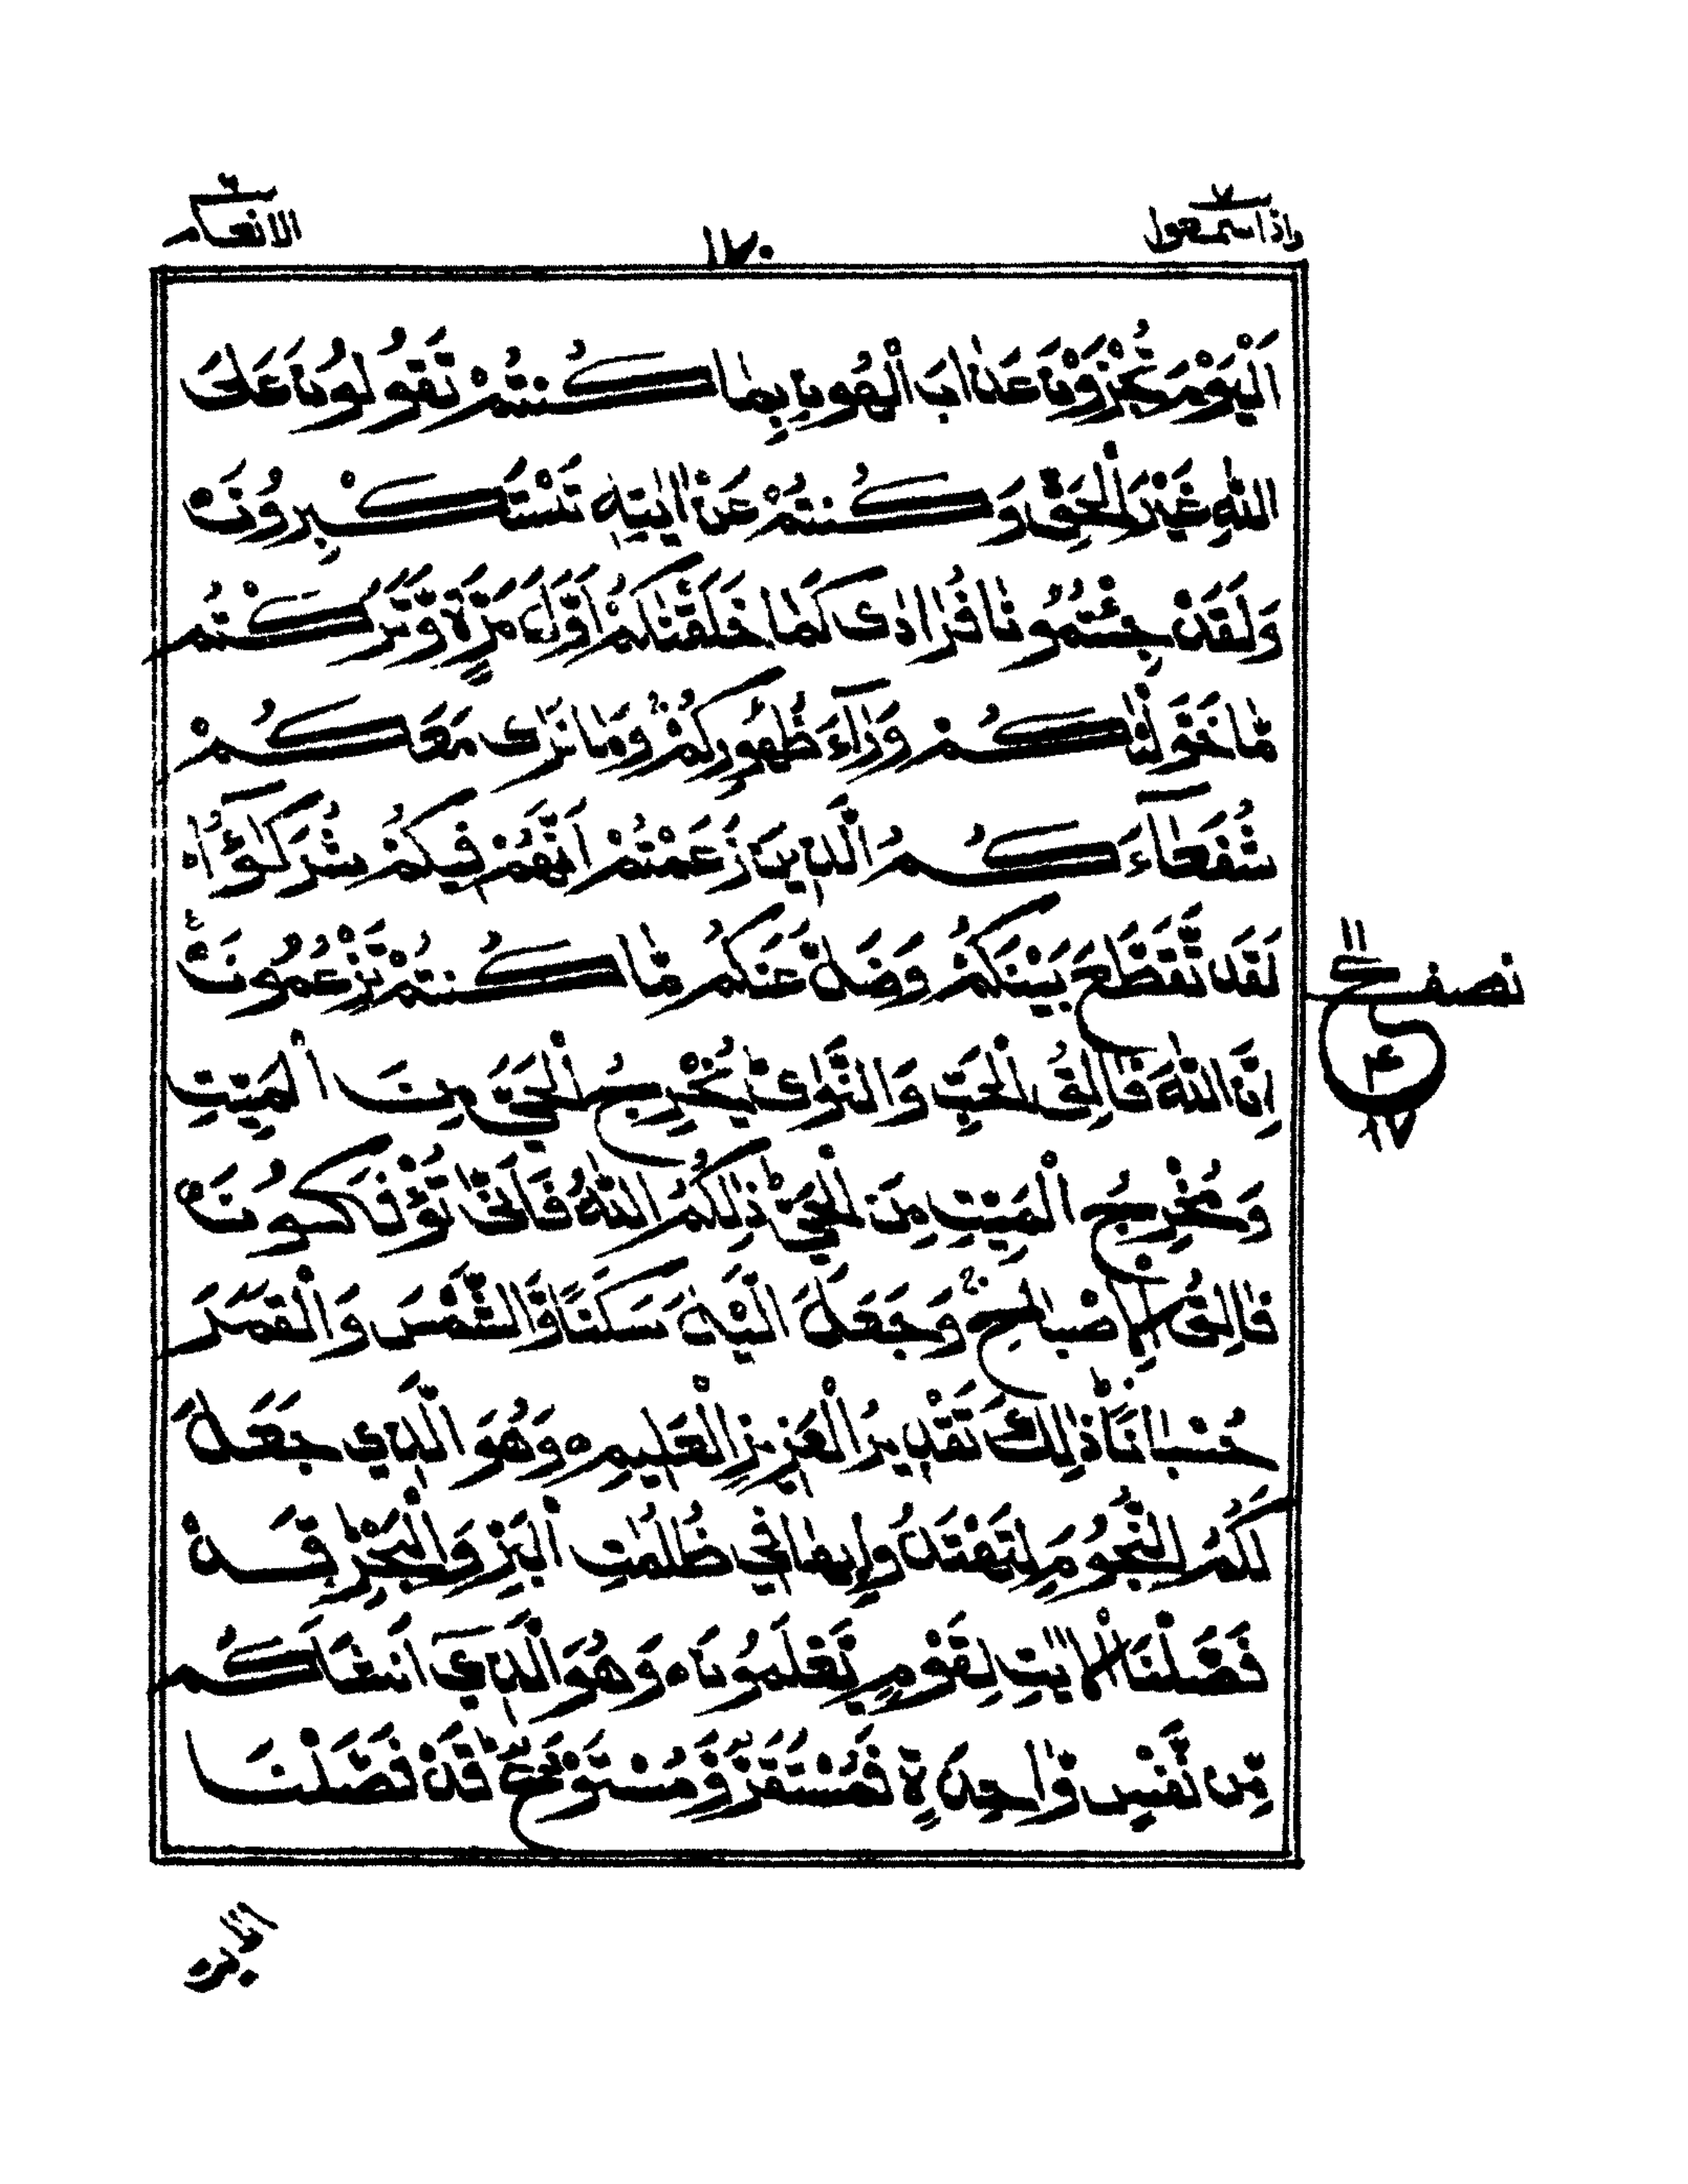 واذاسمعوا ٧
١٧٠
الانعام ٦
اَلْيَوْمَ تُجْزَوْنَ عَذَابَ الْهُونِ بِمَا كُنتُمْ تَقُولُونَ عَلَى
اللّٰهِ غَيْرَ الْحَقِّ وَكُنتُمْ عَنْ اٰيٰتِهٖ تَسْتَكْبِرُوْنَ ۝
وَلَقَدْ جِئْتُمُونَا فُرَادٰى كَمَا خَلَقْنٰكُمْ اَوَّلَ مَرَّةٍ وَّتَرَكْتُم
مَّا خَوَّلْنٰكُمْ وَرَآءَ ظُهُورِكُمْ ۚ وَمَا نَرٰى مَعَكُمْ
شُفَعَآءَكُمُ الَّذِينَ زَعَمْتُمْ اَنَّهُمْ فِيكُمْ شُرَكٰٓؤُا ؕ
لَقَد تَّقَطَّعَ بَيْنَكُمْ وَضَلَّ عَنكُم مَّا كُنتُمْ تَزْعُمُونَ ۝ ع
نصف
ع
٤
١٧
اِنَّ اللّٰهَ فَالِقُ الْحَبِّ وَالنَّوٰى ؕ يُخْرِجُ الْحَيَّ مِنَ الْمَيِّتِ
وَمُخْرِجُ الْمَيِّتِ مِنَ الْحَيِّ ؕ ذٰلِكُمُ اللّٰهُ فَاَنّٰى تُؤْفَكُونَ ۝
فَالِقُ الْاِصْبَاحِ ۚ وَجَعَلَ الَّيْلَ سَكَنًا وَّالشَّمْسَ وَالْقَمَرَ
حُسْبَانًا ؕ ذٰلِكَ تَقْدِيرُ الْعَزِيزِ الْعَلِيمِ ۝ وَهُوَ الَّذِي جَعَلَ
لَكُمُ النُّجُومَ لِتَهْتَدُوا بِهَا فِي ظُلُمٰتِ الْبَرِّ وَالْبَحْرِ ؕ قَدْ
فَصَّلْنَا الْاٰيٰتِ لِقَوْمٍ يَّعْلَمُونَ ۝ وَهُوَ الَّذِيٓ اَنشَاَكُم
مِّن نَّفْسٍ وَّاحِدَةٍ فَمُسْتَقَرٌّ وَّمُسْتَوْدَعٌ ؕ قَدْ فَصَّلْنَا